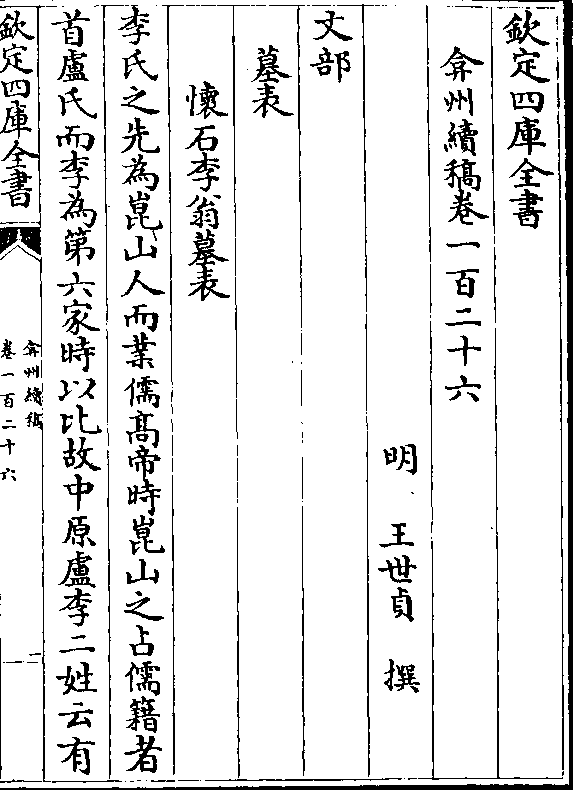 欽定四庫全書
弇州續稿卷一百二十六
明 王世貞 撰
文部
墓表
懷石李翁墓表
李氏之先為崑山人而業儒髙帝時崑山之占儒籍者
首盧氏而李為第六家時以比故中原盧李二姓云有
欽定四庫全書
弇州續稿
卷一百二十六
一